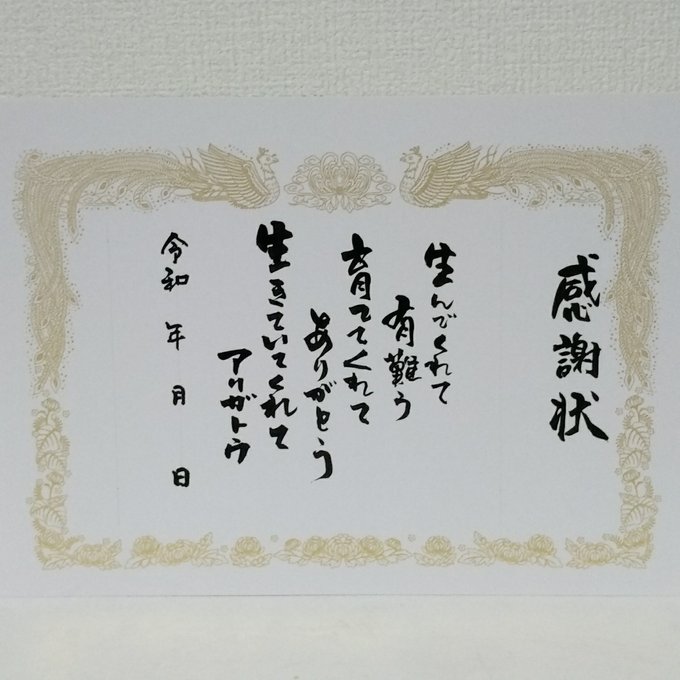 感謝状
生んでくれて
有難う
育ててくれて
ありがとう
生きていてくれて
アリガトウ
令和 年 月 日